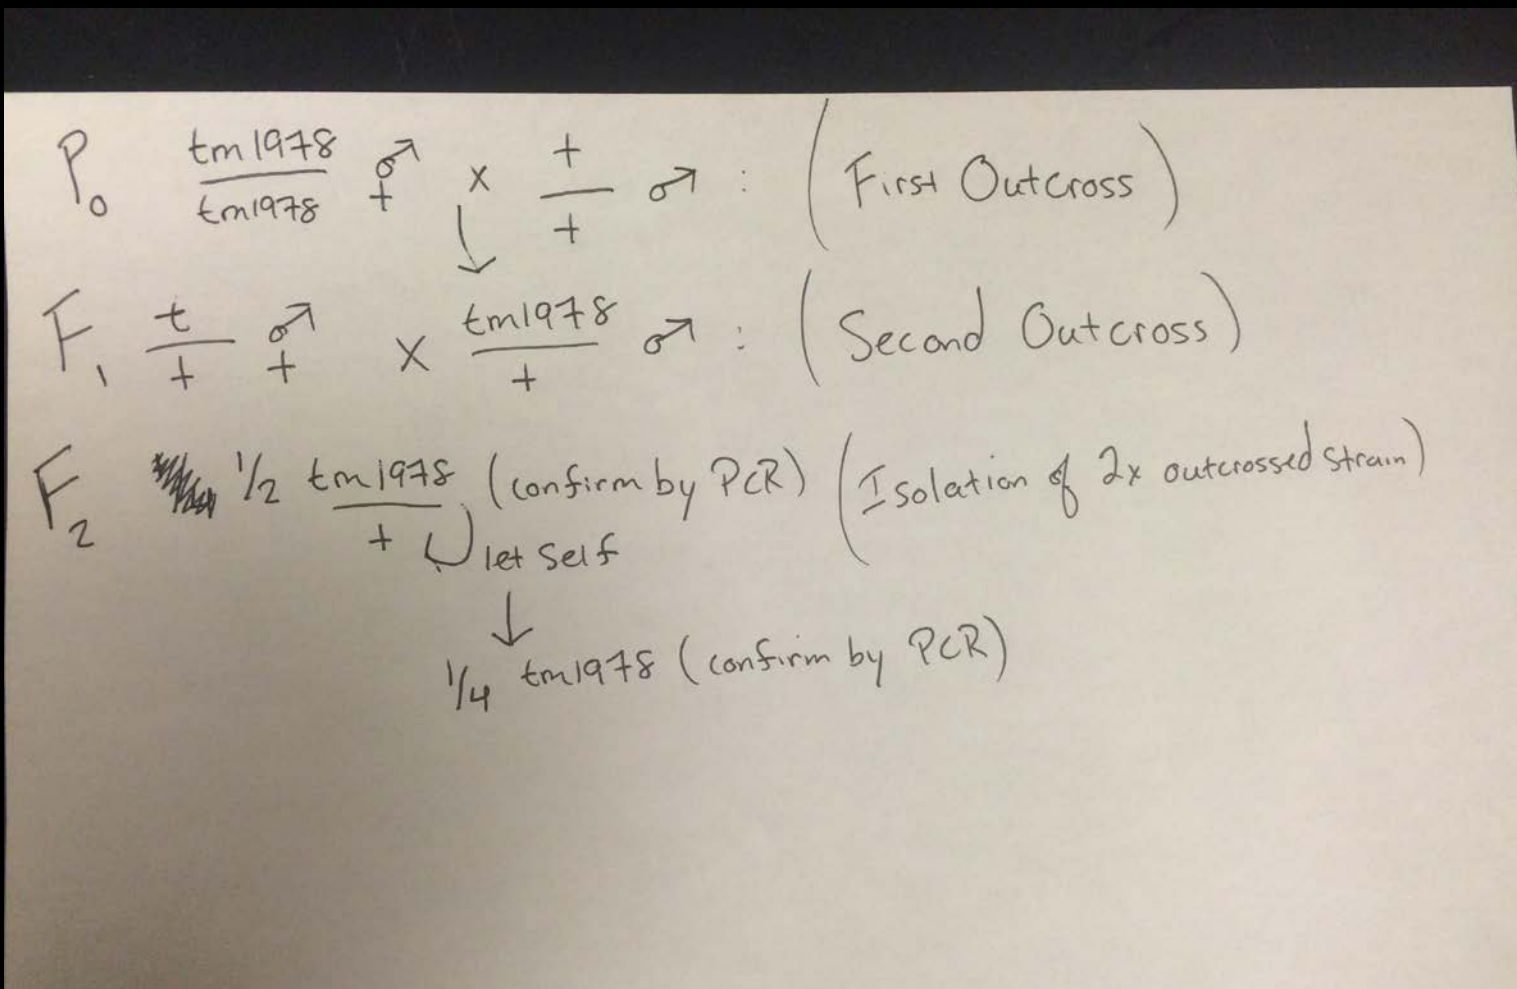 P₀ tm1978/tm1978 ⚥ x +/+ ♂ : (First Outcross)
↓
F₁ t/+ ⚥ x tm1978/+ ♂ : (Second Outcross)
F₂ 1/2 tm1978/+ (confirm by PCR) (Isolation of 2x outcrossed strain)
let self
↓
1/4 tm1978 (confirm by PCR)